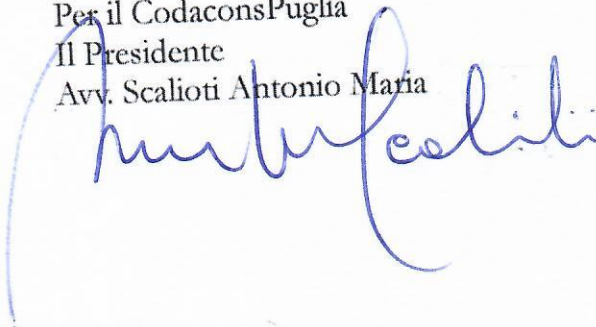 Per il CodaconsPuglia
Il Presidente
Avv. Scalioti Antonio Maria